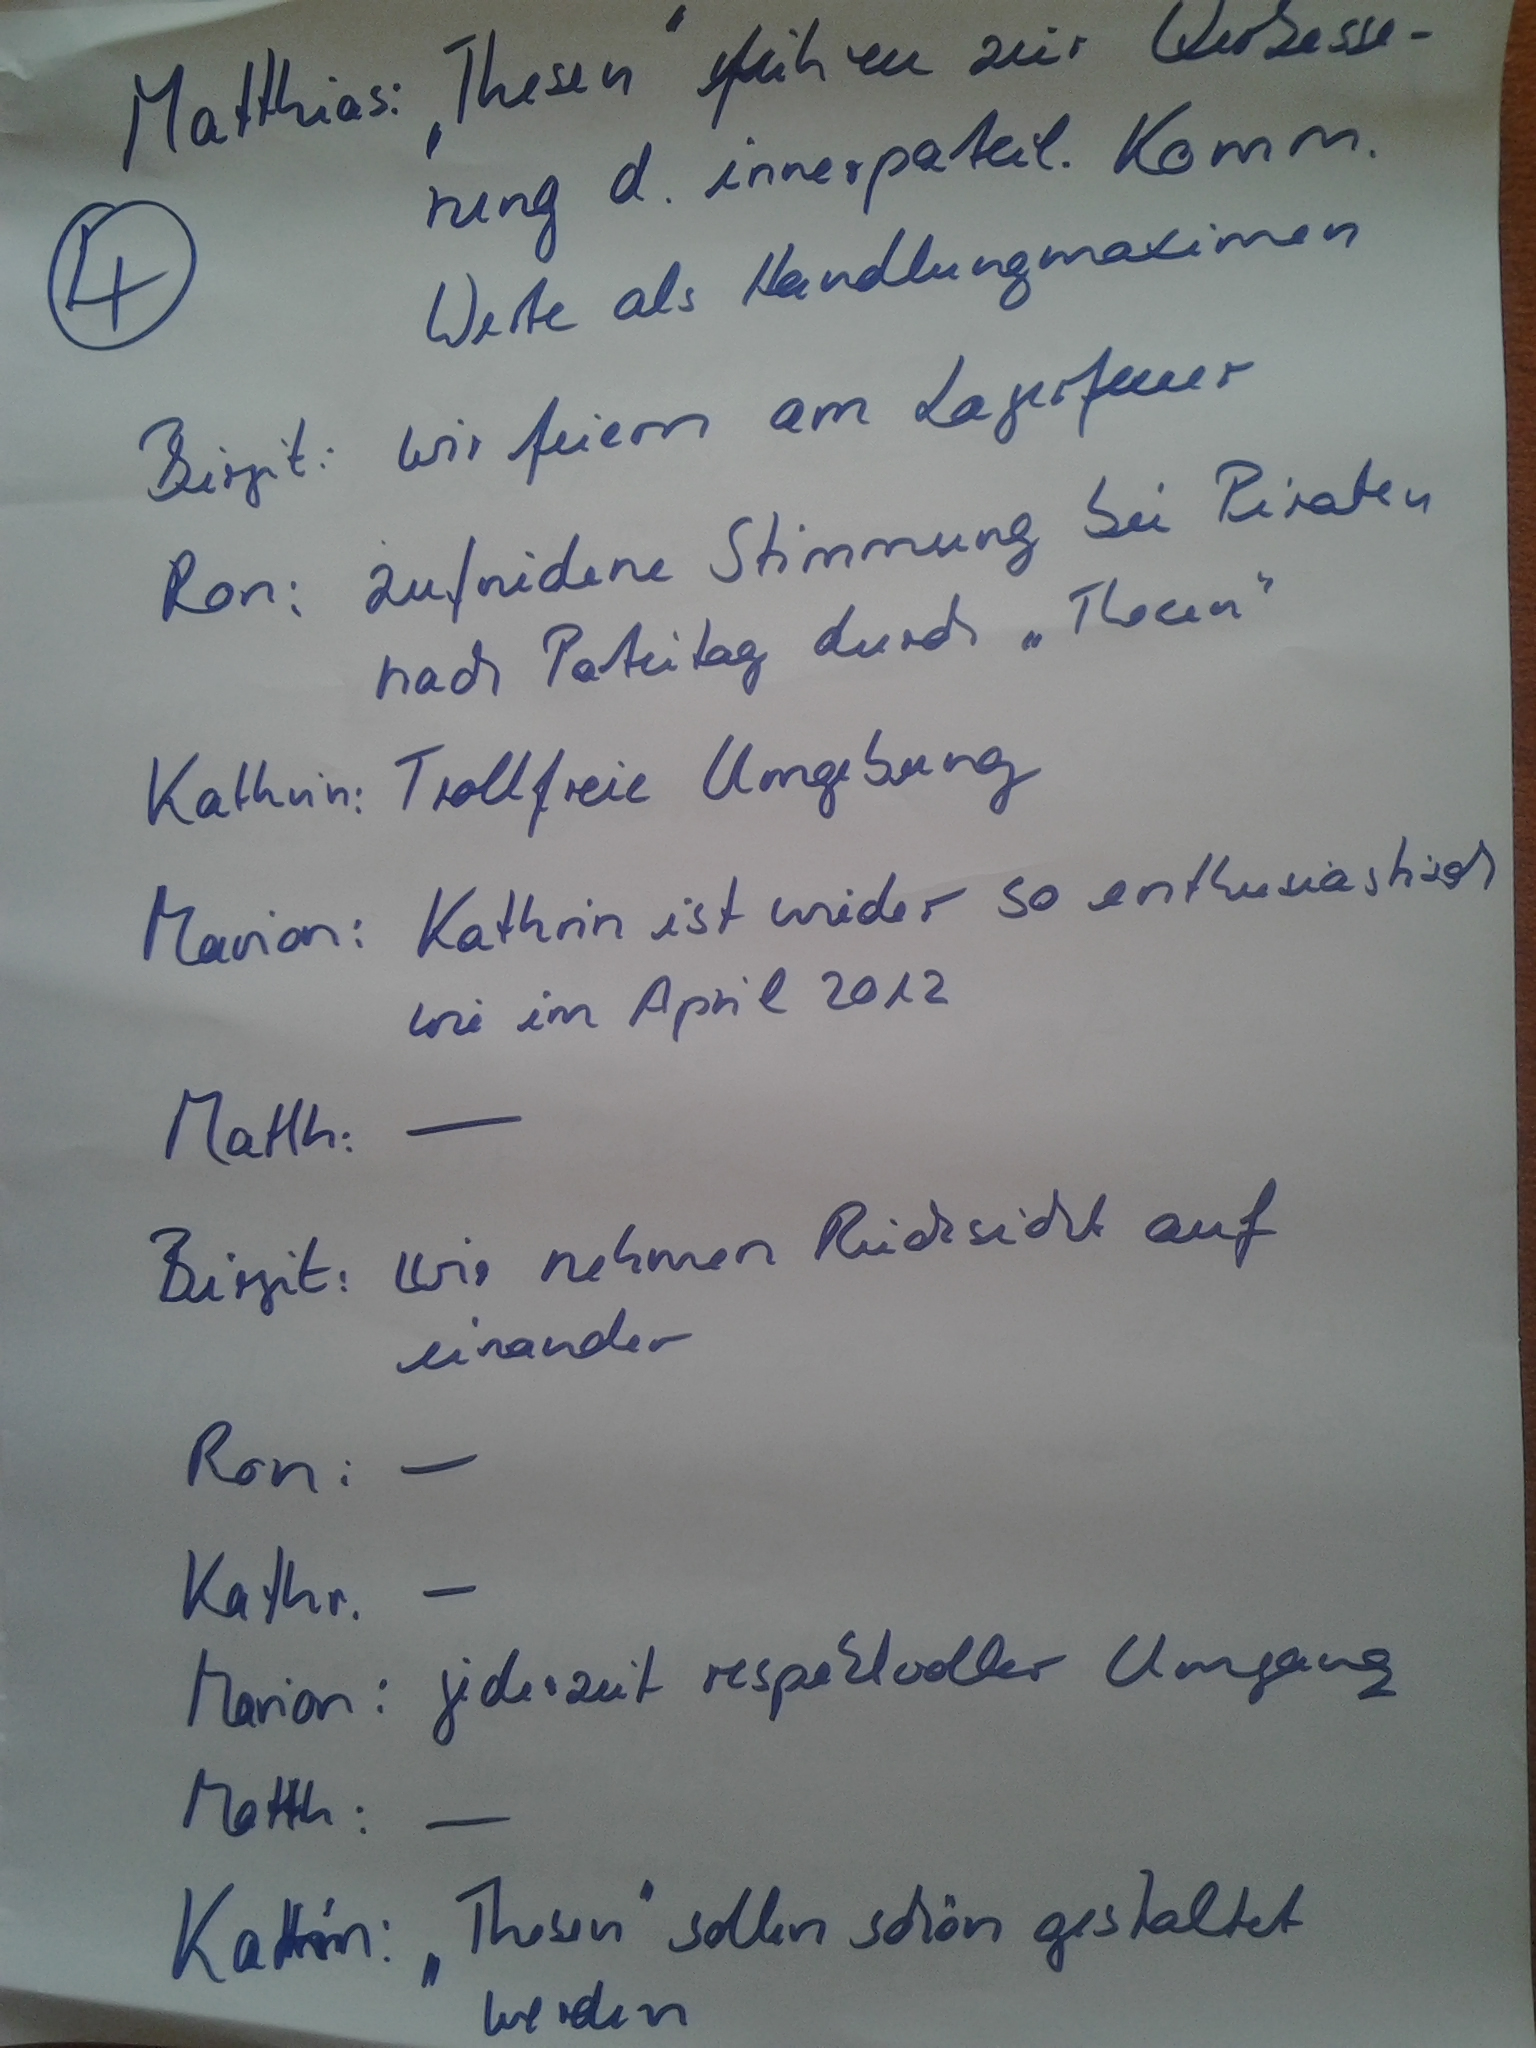 Matthias: „Thesen" führen zur Verbesse-
rung d. innerparteil. Komm.
④
Werte als Handlungmaximen
Birgit: wir feiern am Lagerfeuer
Ron: zufriedene Stimmung bei Piraten
nach Parteitag durch „Thesen"
Kathrin: Trollfreie Umgebung
Marion: Kathrin ist wieder so enthusiastisch
wie im April 2012
Matth: —
Birgit: wir nehmen Rücksicht auf
einander
Ron: —
Kathr. —
Marion: jederzeit respektvoller Umgang
Matth: —
Kathrin: „Thesen" sollen schön gestaltet
werden